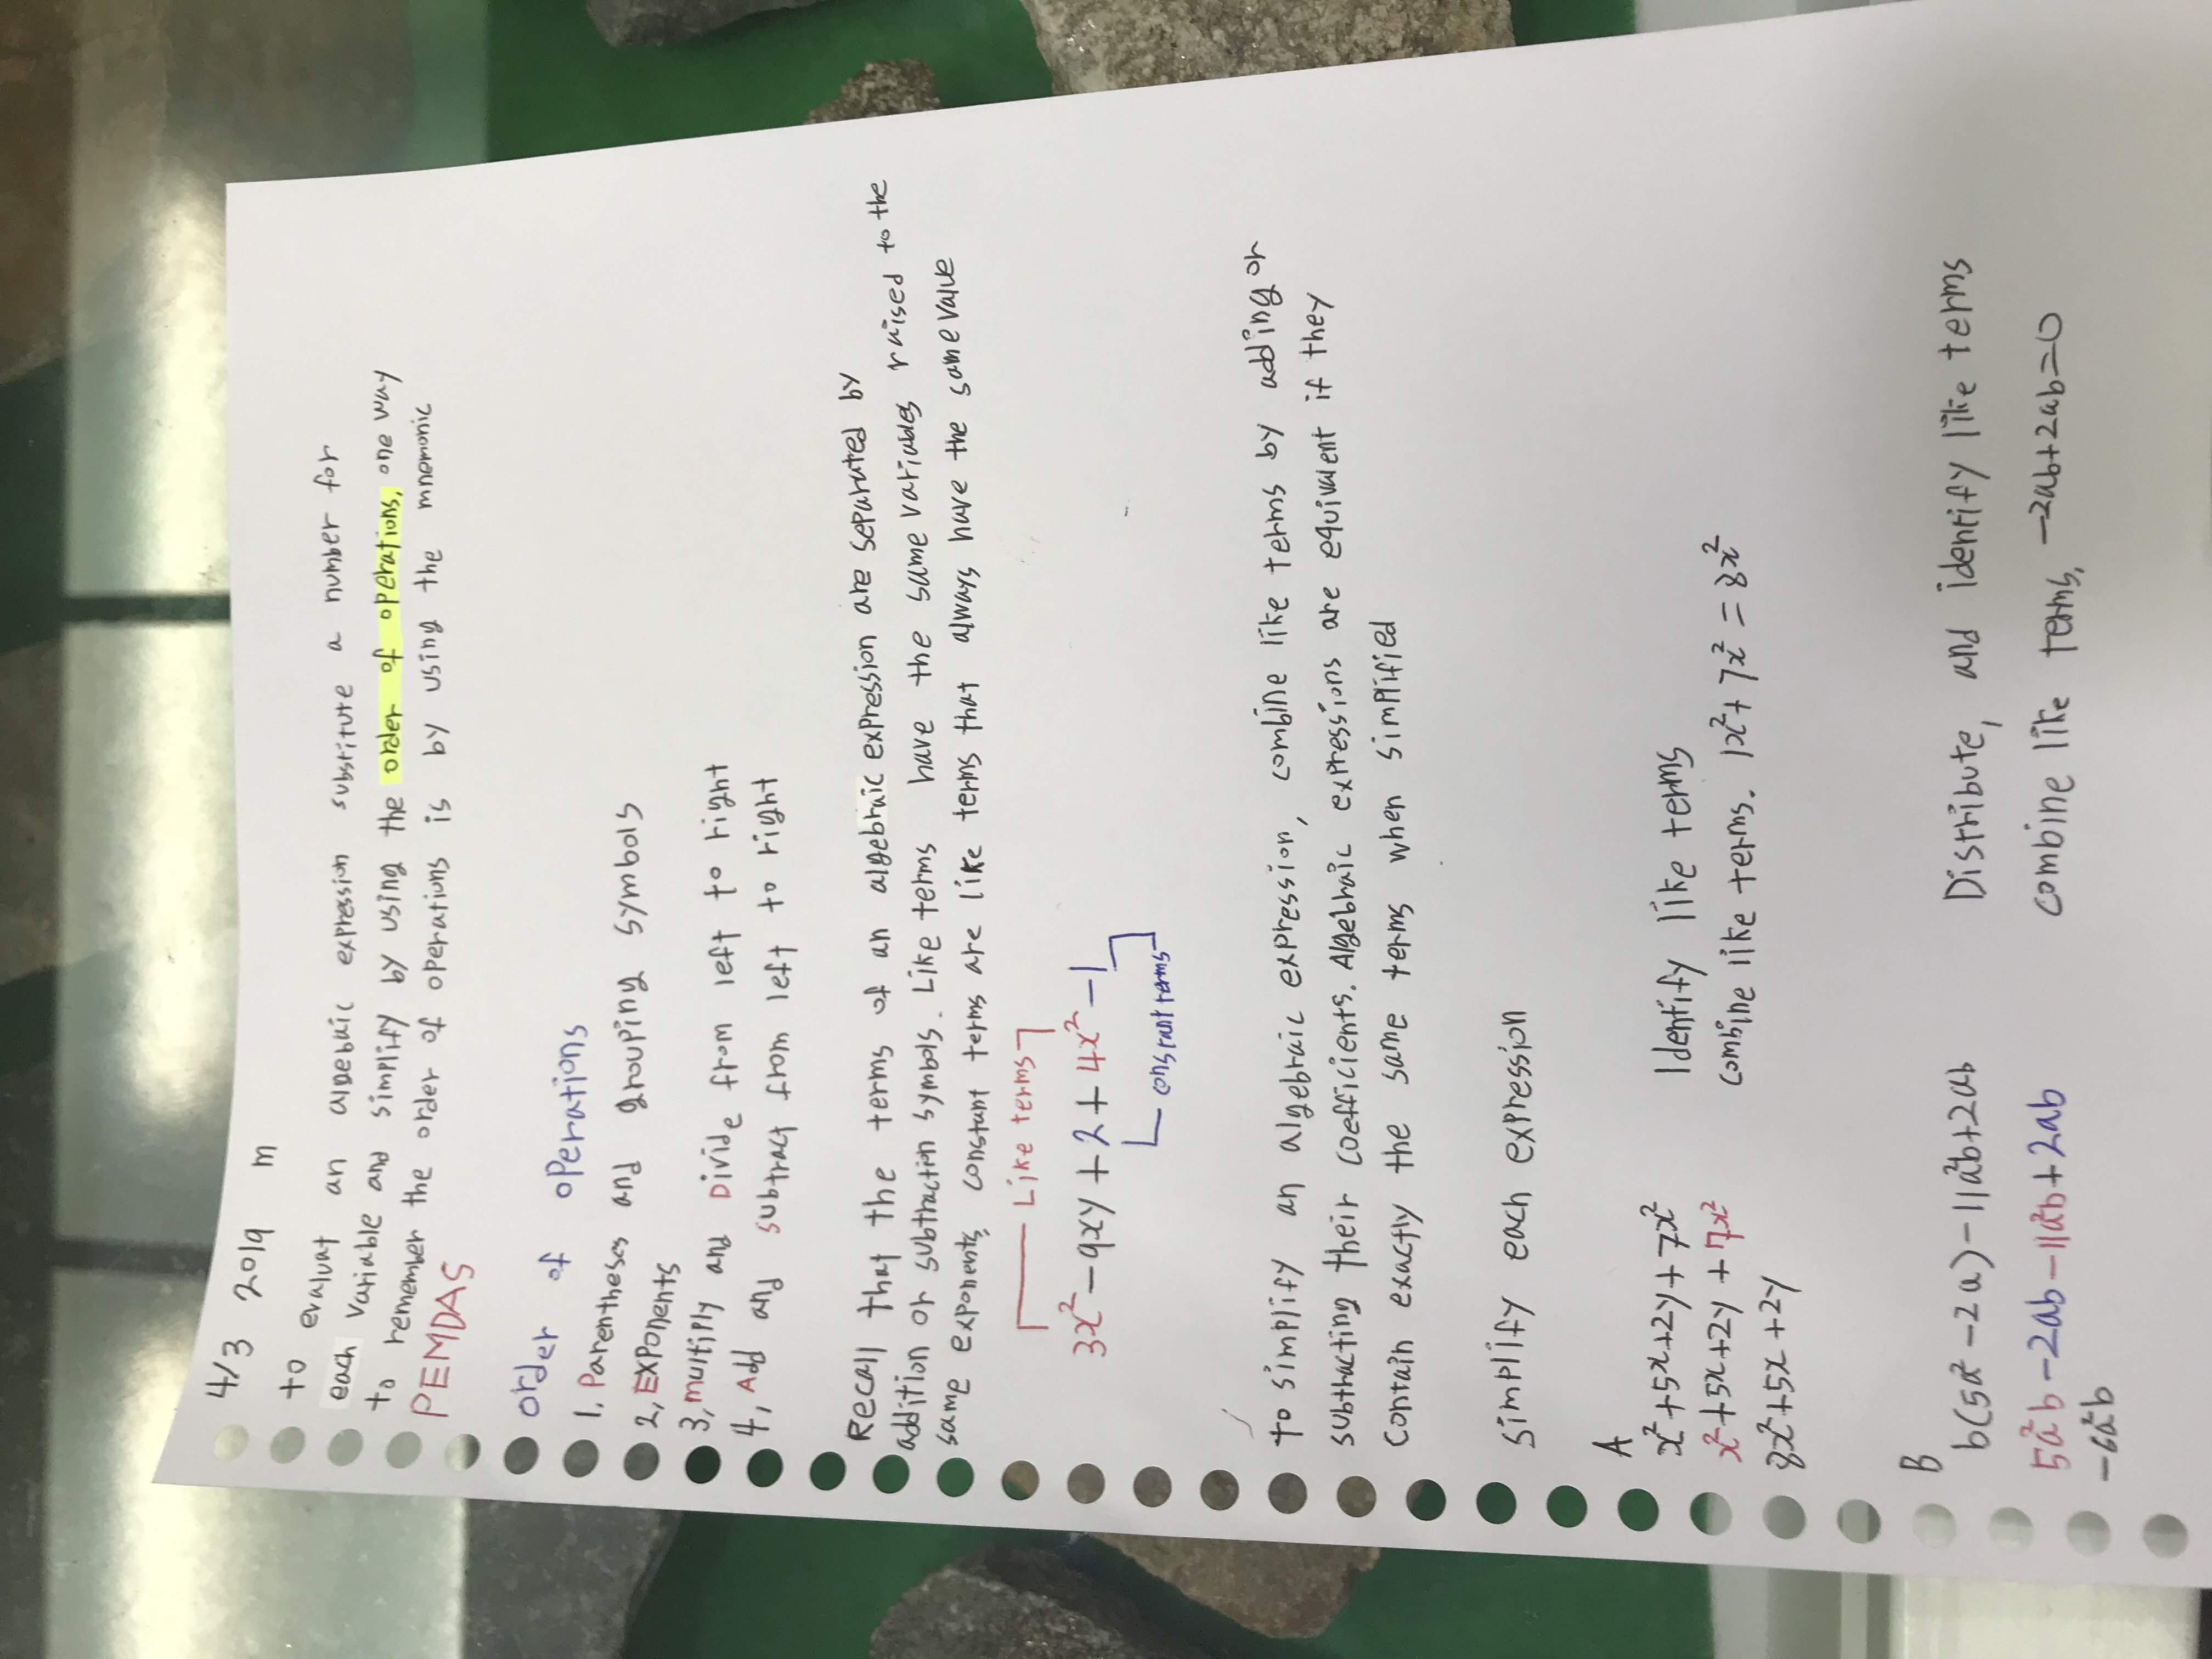 4/3 2019 m
to evaluat an algebaic expression substitute a number for
each variable and simplify by using the order of operations, one way
to remember the order of operations is by using the mnemonic
PEMDAS
order of operations
1, Parentheses and grouping symbols
2, Exponents
3, multiply and Divide from left to right
4, Add and subtract from left to right
Recall that the terms of an algebraic expression are separated by
addition or subtraction symbols. Like terms have the same variables raised to the
same exponents, constant terms are like terms that always have the same value
Like terms
3x² - 9xy + 2 + 4x² - 1
constant terms
to simplify an algebraic expression, combine like terms by adding or
subtracting their coefficients. Algebraic expressions are equivalent if they
contain exactly the same terms when simplified
simplify each expression
A
x² + 5x + 2y + 7x² Identify like terms
x² + 5x + 2y + 7x² combine like terms. 1x² + 7x² = 8x²
8x² + 5x + 2y
B
b(5a² - 2a) - 11a²b + 2ab Distribute, and identify like terms
5a²b - 2ab - 11a²b + 2ab combine like terms, -2ab+2ab=0
-6a²b